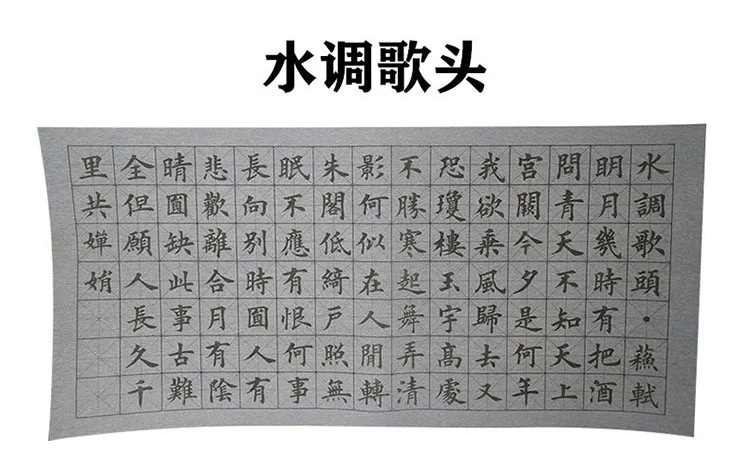 水调歌头
水調歌頭·蘇軾
明月幾時有把酒
問青天不知天上
宮闕今夕是何年
我欲乘風歸去又
恐瓊樓玉宇高處
不勝寒起舞弄清
影何似在人間轉
朱閣低綺戶照無
眠不應有恨何事
長向別時圓人有
悲歡離合月有陰
晴圓缺此事古難
全但願人長久千
里共嬋娟